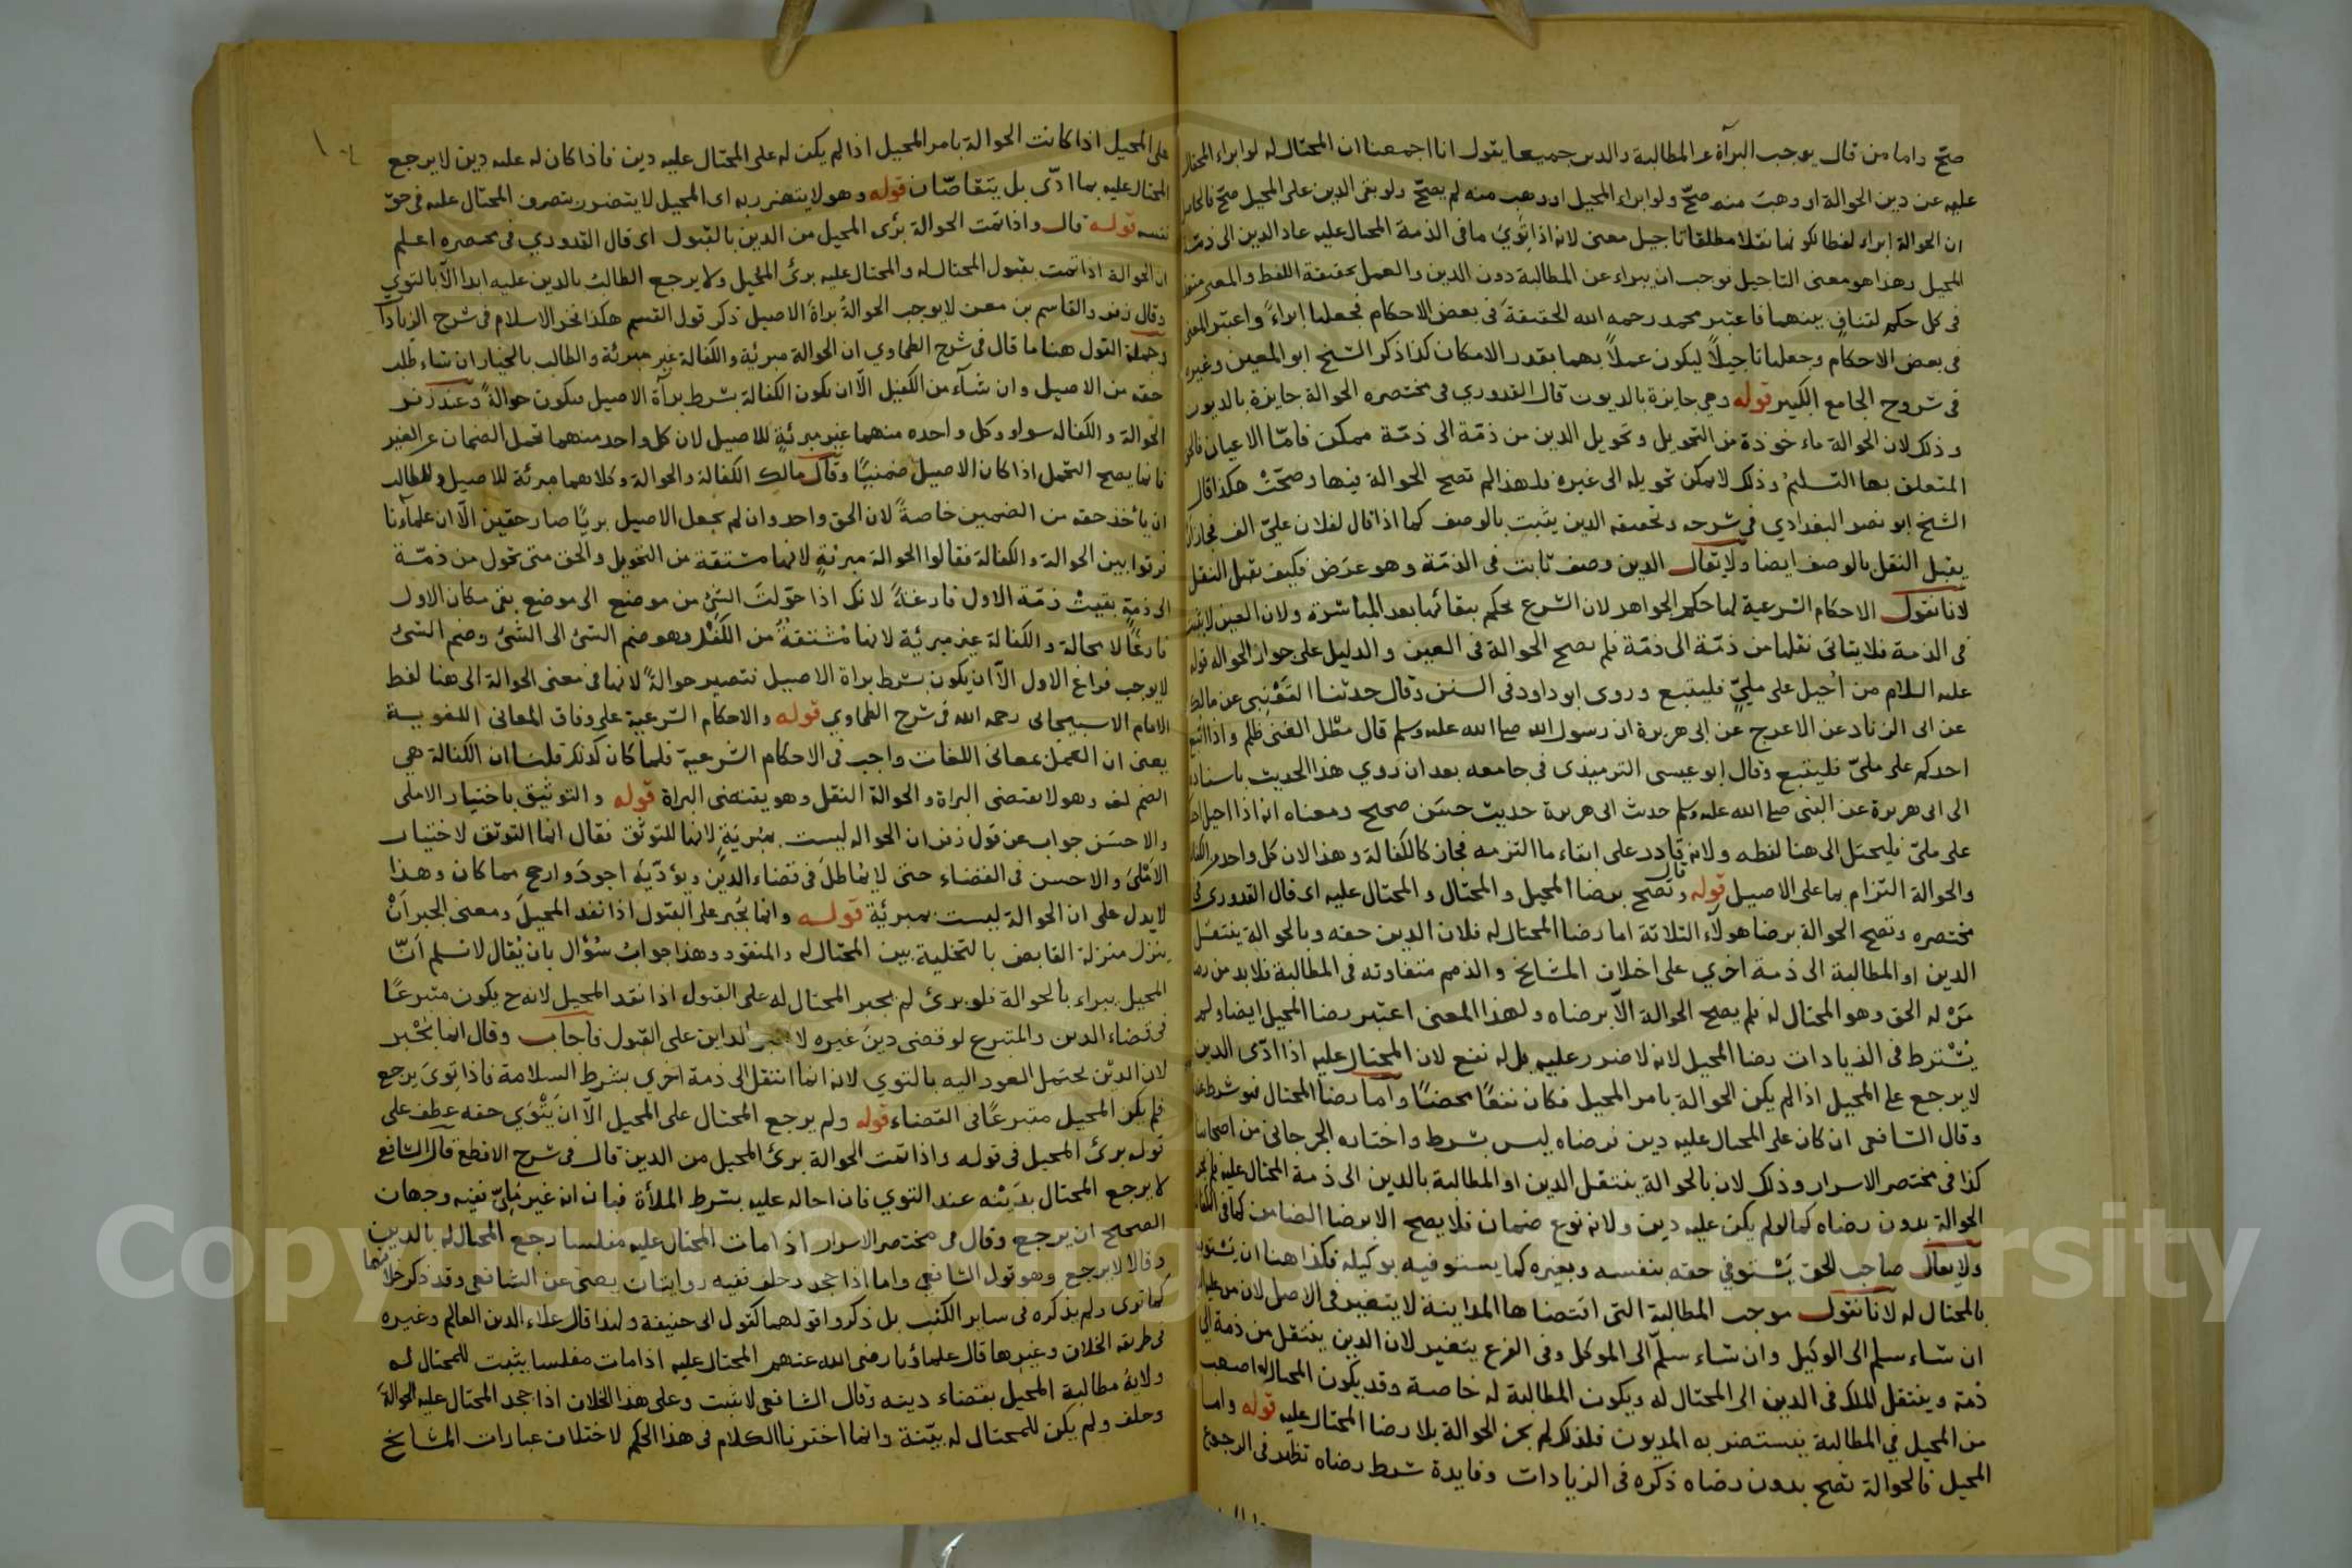 صحّ واما من قال يوجب البرآة عن المطالبة والدين جميعا يقول انا اجمعنا ان المحتال له لو ابراء المحتال
عليه عن دين الحوالة او وهبَ منه صحّ ولو ابراء المحيل او وهب منه لم يصحّ ولو بقى الدين على المحيل صحّ
ان الحوالة ابراء لفظا لكونها نقلا مطلقا تاجيل معنى لانه اذا تَوِيَ ما فى الذمة المحتال عليه عاد الدين الى ذمّة
المحيل وهذا هو معنى التاجيل فوجب ان يبراء عن المطالبة دون الدين والعمل بحقيقة اللفظ والمعنى
فى كل حكم لتنافٍ بينهما فاعتبر محمد رحمه الله الحقيقة فى بعض الاحكام فجعلها ابراءً واعتبر المعنى
فى بعض الاحكام وجعلها تاجيلاً ليكون عملاً بهما بقدر الامكان كذا ذكر الشيخ ابو المعين وغيره
فى شروح الجامع الكبير قوله وهى جايزة بالديون قال القدوري فى مختصره الحوالة جايزة بالديون
وذلك لان الحوالة ماءخوذة من التحويل وتحويل الدين من ذمّة الى ذمّة ممكن فامّا الاعيان
المتعلق بها التسليمُ وذلك لا يمكن تحويله الى غيره فلهذا لم تصح الحوالة فيها وصحّتْ هكذا قال
الشيخ ابو نصر البغدادي فى شرحه وتحقيقه الدين يثبت بالوصف كما اذا قال لفلان علىّ الف فجاز ان
يقبل النقل بالوصف ايضا ولا يقال الدين وصف ثابت فى الذمّة وهو عرَض فكيف يقبل النقل
لانا نقول الاحكام الشرعية لها حكم الجواهر لان الشرع يحكم ببقائها بعد المباشرة ولان العين لا يثبت
فى الذمة فلا يتاتى نقلها من ذمّة الى ذمّة فلم يصح الحوالة فى العين والدليل على جواز الحوالة قوله
عليه السلام من اُحيل على ملىٍّ فليتبع وروى ابو داود فى السنن وقال حدثنا القَعْنبى عن مالك
عن ابى الزناد عن الاعرج عن ابى هريرة ان رسول الله صلى الله عليه وسلم قال مَطْل الغنى ظلم واذا اتبع
احدكم على ملىّ فليتبع وقال ابو عيسى الترميذى فى جامعه بعد ان روي هذا الحديث باسناده
الى ابى هريرة عن النبى صلى الله عليه وسلم حديث ابى هريرة حديث حسَن صحيح ومعناه انه اذا احيل احدكم
على ملىّ فليحتل الى هنا لفظه ولانه قادر على ايفاء ما التزمه فجاز كالكفالة وهذا لان كل واحد من الكفالة
والحوالة التزام بما على الاصيل قوله قال وتصح برضا المحيل والمحتال والمحتال عليه اى قال القدورى فى
مختصره وتصح الحوالة برضا هولآء الثلاثة اما رضا المحتال له فلان الدين حقه وبالحوالة ينتقل
الدين او المطالبة الى ذمة اخري على اختلاف المشايخ والذمم متفاوته فى المطالبة فلا بد من رضا
مَنْ له الحق وهو المحتال له فلم يصح الحوالة الّا برضاه ولهذا المعنى اعتبر رضا المحيل ايضا ولم
يُشترط فى الزيادات رضا المحيل لانه لا ضرر عليه بل له نفع لان المحتال عليه اذا ادّى الدين
لا يرجع على المحيل اذا لم يكن الحوالة بامر المحيل فكان نفعًا محضًا واما رضا المحتال فهو شرط عندنا
وقال الشافعى ان كان على المحتال عليه دين فرضاه ليس بشرط واختاره الجرجانى من اصحابنا
كذا فى مختصر الاسرار وذلك لان بالحوالة ينتقل الدين او المطالبة بالدين الى ذمة المحتال عليه فلم يجز
الحوالة بدون رضاه كما لو لم يكن عليه دين ولانه نوع ضمان فلا يصح الا برضا الضامن كما فى الكفالة
ولا يقال صاحب الحق يَسْتوفى حقه بنفسه وبغيره كما يستوفيه بوكيله فكذا هنا ان يستوفى
بالمحتال له لانا نقول موجب المطالبة التى اقتضاها المداينة لا يتغير فى الاصل لان من عليه
ان شاء سلم الى الوكيل وان شاء سلّم الى الموكل وفى الفرع يتغير لان الدين ينتقل من ذمة الى
ذمة وينتقل الملك فى الدين الى المحتال له ويكون المطالبة له خاصة وقد يكون المحتال له اصعب
من المحيل فى المطالبة فيستضر به المديون فلذلك لم يجز الحوالة بلا رضا المحتال عليه قوله واما
المحيل فالحوالة تصح بدون رضاه ذكره فى الزيادات وفايدة شرط رضاه تظهر فى الرجوع
على المحيل اذا كانت الحوالة بامر المحيل اذا لم يكن له على المحتال عليه دين فاذا كان له عليه دين لا يرجع
المحتال عليه بما ادّى بل يتقاصّان قوله وهو لا يتضرر به اى المحيل لا يتضرر بتصرف المحتال عليه فى حقّ
نفسه قوله قال واذا تمّت الحوالة برَى المحيل من الدين بالقبول اى قال القدوري فى مختصره اعلم
ان الحوالة اذا تمت بقبول المحتال له والمحتال عليه برئَ المحيل ولا يرجع الطالب بالدين عليه ابدا الّا بالتوي
وقال زفر والقاسم بن معن لا يوجب الحوالةُ براءةَ الاصيل ذكر قول القسم هكذا فخر الاسلام فى شرح الزيادات
وجملة القول هنا ما قال فى شرح الطحاوي ان الحوالة مبرئة والكفالة غير مبرئة والطالب بالخيار ان شاء طلب
حقه من الاصيل وان شآء من الكفيل الّا ان يكون الكفالة بشرط برآة الاصيل فيكون حوالةً وعند زفر
الحوالة والكفالة سواء وكل واحده منهما غير مبرئةٍ للاصيل لان كل واحد منهما تحمل الضمان عن الغير
فانما يصح التحمل اذا كان الاصيل ضمنيًا وقال مالك الكفالة والحوالة وكلاهما مبرئة للاصيل وللطالب
ان ياخذ حقه من الضمين خاصةً لان الحق واحد وان لم يجعل الاصيل بريًا صار حقين الّا ان علماءنا
فرقوا بين الحوالة والكفالة فقالوا الحوالة مبرئةٍ لانها مشتقة من التحويل والحق متى تحول من ذمّة
الى ذمةٍ بقيتْ ذمّة الاول فارغةً لانك اذا حوّلتَ الشئ من موضع الى موضع بقى مكان الاول
فارغًا لا محالة والكفالة غير مبرئة لانها مُشتقةٌ من الكَفْل وهو ضم الشئ الى الشئ وضم الشئ
لا يوجب فراغ الاول الاّ ان يكون بشرط براة الاصيل فتصير حوالةً لانها فى معنى الحوالة الى هنا لفظ
الامام الاسبيجابى رحمه الله فى شرح الطحاوي قوله والاحكام الشرعية على وفاق المعانى اللغوية
يعنى ان العمل بمعانى اللغات واجب فى الاحكام الشرعية فلما كان كذلك قلنا ان الكفالة هى
الضم لغه وهو لا يقتضى البراة والحوالة النقل وهو يقتضى البراة قوله والتوثيق باختيار الاملى
والاحسَن جواب عن قول زفر ان الحواله ليست بمُبريَةٍ لانها للتوثّق فقال انما التوثق لاختيار
الاَمْلَى والاحسن فى القضاء حتى لا يُماطل فى قضاء الدَين ويؤدّيَهُ اجودَ وارجح مما كان وهذا
لا يدل على ان الحوالة ليست بمبرئة قوله وانما يُجْبر على القبول اذا نقد المحيلَ ومعنى الجبر اَنْ
ينزل منزلة القابض بالتخلية بين المحتال له والمنقود وهذا جوابُ سُؤال بان يُقال لا نسلم اَنّ
المحيل يبراء بالحوالة فلو برئ لم يجبر المحتال له على القبول اذا نقد المحيل لانه ح يكون متبرعًا
فى قضاء الدين والمتبرع لو قضى دين غيره لا يجبر الداين على القبول فاجاب وقال انما يُجْبر
لان الدَيْن يحتمل العود اليه بالتوي لانه انما انتقل الى ذمة اخري بشرط السلامة فاذا توىَ يرجع
فلم يكن المحيل متبرعًا فى القضاء قوله ولم يرجع المحتال على المحيل الّا ان يَتْوَي حقه عطف على
قوله برئ المحيل فى قوله واذا تمت الحوالة برئ المحيل من الدين قال فى شرح الاقطع قال الشافع
لا يرجع المحتال بدَيْنه عند التوي فان احاله عليه بشرط الملأة فبان انه غير ملىّ ففيه وجهان
الصحيح ان يرجع وقال فى مختصر الاسرار اذا مات المحتال عليه مفلسا رجع المحتال له بالدين
وقالا لا يرجع وهو قول الشافعى واما اذا جحد وحلف ففيه روايتان يصحّ عن الشافعى وقد ذكر خلافهما
كما تري ولم يذكره فى ساير الكتب بل ذكروا قولهما كقول ابى حنيفة ولهذا قال علاء الدين العالم وغيره
فى طريقه الخلاف وغيرها قال علماؤنا رضى الله عنهم المحتال عليه اذا مات مفلسا يثبت للمحتال له
ولاية مطالبة المحيل بقضاء دينه وقال الشافعى لا يثبت وعلى هذا الخلاف اذا جحد المحتال عليه الحوالة
وحلف ولم يكن للمحتال له بيّنة وانما اخترنا الكلام فى هذا الحكم لاختلاف عبارات المشايخ
Copyright © King Saud University